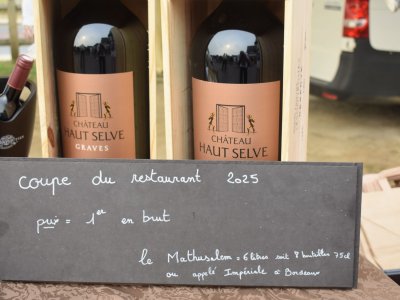 CHÂTEAU
HAUT SELVE
GRAVES
CHÂTEAU
HAUT SELVE
Coupe du restaurant 2025
prix = 1er en brut
le Mathusalem = 6 litres soit 8 bouteilles 75cl
ou appelé Impériale à Bordeaux